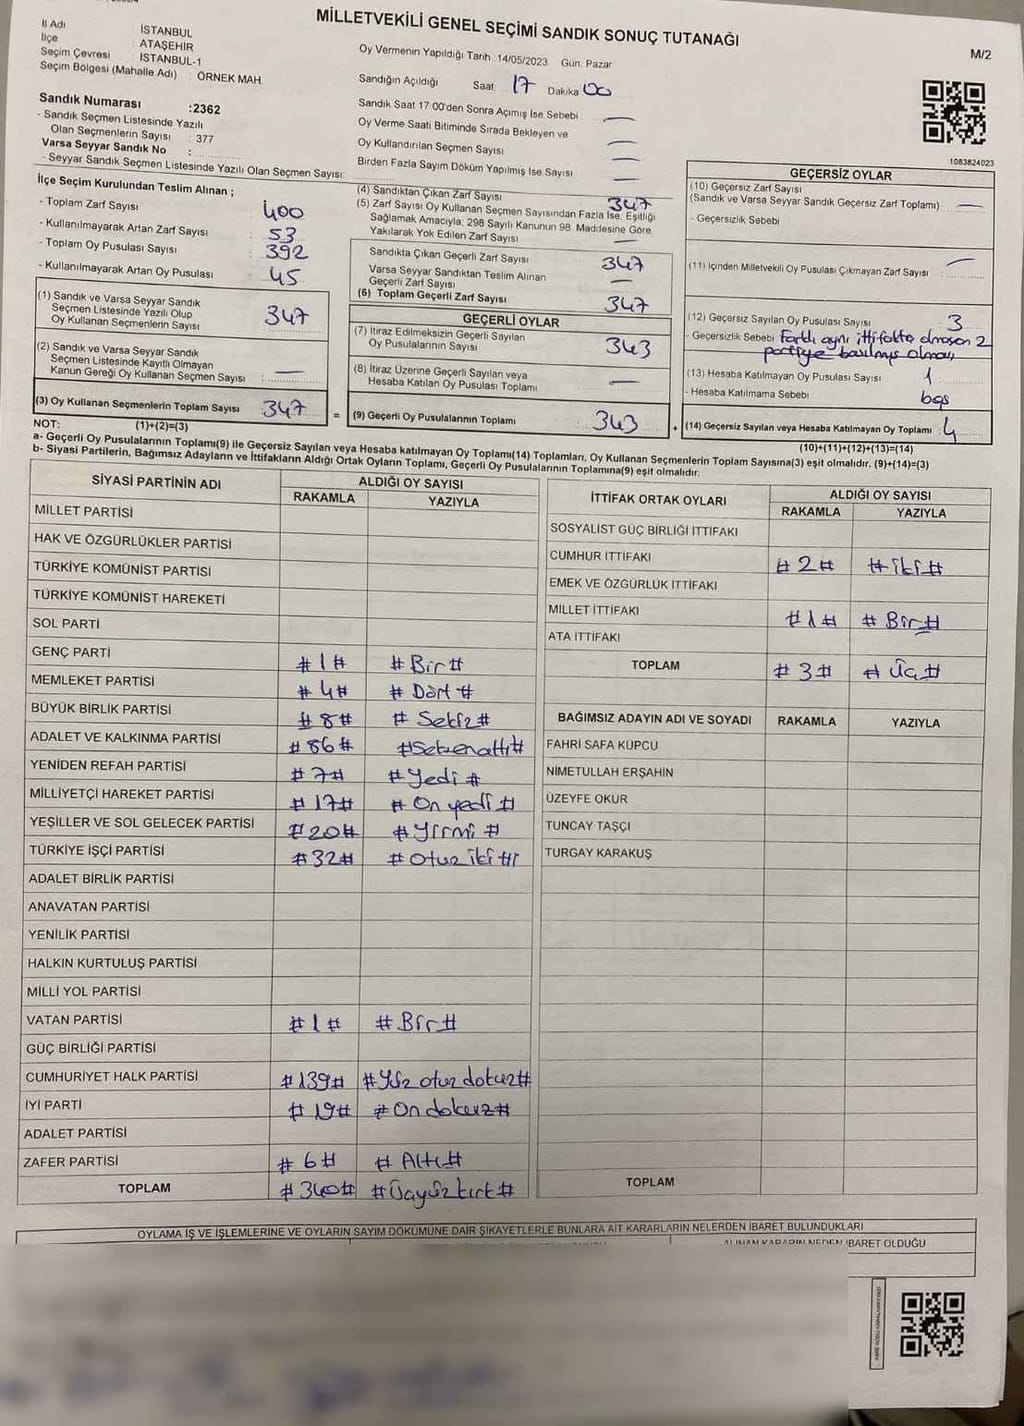 MİLLETVEKİLİ GENEL SEÇİMİ SANDIK SONUÇ TUTANAĞI
M/2
İl Adı İSTANBUL
İlçe ATAŞEHİR
Seçim Çevresi İSTANBUL-1
Seçim Bölgesi (Mahalle Adı) : ÖRNEK MAH.
Sandık Numarası :2362
- Sandık Seçmen Listesinde Yazılı
Olan Seçmenlerin Sayısı : 377
Varsa Seyyar Sandık No :
- Seyyar Sandık Seçmen Listesinde Yazılı Olan Seçmen Sayısı:
Oy Vermenin Yapıldığı Tarih :14/05/2023 Gün: Pazar
Sandığın Açıldığı Saat: 17 Dakika 00
Sandık Saat 17:00'den Sonra Açımış İse Sebebi —
Oy Verme Saati Bitiminde Sırada Bekleyen ve
Oy Kullandırılan Seçmen Sayısı —
Birden Fazla Sayım Döküm Yapılmış İse Sayısı —
1083824023
İlçe Seçim Kurulundan Teslim Alınan ;
- Toplam Zarf Sayısı : 400
- Kullanılmayarak Artan Zarf Sayısı : 53
- Toplam Oy Pusulası Sayısı : 392
- Kullanılmayarak Artan Oy Pusulası : 45
(1) Sandık ve Varsa Seyyar Sandık
Seçmen Listesinde Yazılı Olup
Oy Kullanan Seçmenlerin Sayısı 347
(2) Sandık ve Varsa Seyyar Sandık
Seçmen Listesinde Kayıtlı Olmayan
Kanun Gereği Oy Kullanan Seçmen Sayısı : —
(3) Oy Kullanan Seçmenlerin Toplam Sayısı 347
(4) Sandıktan Çıkan Zarf Sayısı 347
(5) Zarf Sayısı Oy Kullanan Seçmen Sayısından Fazla İse, Eşitliği
Sağlamak Amacıyla, 298 Sayılı Kanunun 98. Maddesine Göre
Yakılarak Yok Edilen Zarf Sayısı —
Sandıkta Çıkan Geçerli Zarf Sayısı 347
Varsa Seyyar Sandıktan Teslim Alınan
Geçerli Zarf Sayısı —
(6) Toplam Geçerli Zarf Sayısı 347
GEÇERLİ OYLAR
(7) İtiraz Edilmeksizin Geçerli Sayılan
Oy Pusulalarının Sayısı 343
(8) İtiraz Üzerine Geçerli Sayılan veya
Hesaba Katılan Oy Pusulası Toplamı —
= (9) Geçerli Oy Pusulalarının Toplamı : 343
GEÇERSİZ OYLAR
(10) Geçersiz Zarf Sayısı
(Sandık ve Varsa Seyyar Sandık Geçersiz Zarf Toplamı) —
- Geçersizlik Sebebi :
(11) İçinden Milletvekili Oy Pusulası Çıkmayan Zarf Sayısı : —
(12) Geçersiz Sayılan Oy Pusulası Sayısı 3
- Geçersizlik Sebebi Farklı aynı ittifakta olmayan 2
partiye basılmış olması
(13) Hesaba Katılmayan Oy Pusulası Sayısı 1
- Hesaba Katılmama Sebebi : boş
+ (14) Geçersiz Sayılan veya Hesaba Katılmayan Oy Toplamı : 4
NOT: (1)+(2)=(3)
(10)+(11)+(12)+(13)=(14)
a- Geçerli Oy Pusulalarının Toplamı(9) ile Geçersiz Sayılan veya Hesaba katılmayan Oy Toplamı(14) Toplamları, Oy Kullanan Seçmenlerin Toplam Sayısına(3) eşit olmalıdır, (9)+(14)=(3)
b- Siyasi Partilerin, Bağımsız Adayların ve İttifakların Aldığı Ortak Oyların Toplamı, Geçerli Oy Pusulalarının Toplamına(9) eşit olmalıdır.
SİYASİ PARTİNİN ADI ALDIĞI OY SAYISI
RAKAMLA YAZIYLA
MİLLET PARTİSİ
HAK VE ÖZGÜRLÜKLER PARTİSİ
TÜRKİYE KOMÜNİST PARTİSİ
TÜRKİYE KOMÜNİST HAREKETİ
SOL PARTİ
GENÇ PARTİ #1# #Bir#
MEMLEKET PARTİSİ #4# #Dört#
BÜYÜK BİRLİK PARTİSİ #8# #Sekiz#
ADALET VE KALKINMA PARTİSİ #86# #Seksenaltı#
YENİDEN REFAH PARTİSİ #7# #Yedi#
MİLLİYETÇİ HAREKET PARTİSİ #17# #On yedi#
YEŞİLLER VE SOL GELECEK PARTİSİ #20# #Yirmi#
TÜRKİYE İŞÇİ PARTİSİ #32# #Otuz iki#
ADALET BİRLİK PARTİSİ
ANAVATAN PARTİSİ
YENİLİK PARTİSİ
HALKIN KURTULUŞ PARTİSİ
MİLLİ YOL PARTİSİ
VATAN PARTİSİ #1# #Bir#
GÜÇ BİRLİĞİ PARTİSİ
CUMHURİYET HALK PARTİSİ #139# #Yüz otuz dokuz#
İYİ PARTİ #19# #On dokuz#
ADALET PARTİSİ
ZAFER PARTİSİ #6# #Altı#
TOPLAM #340# #Üçyüz kırk#
İTTİFAK ORTAK OYLARI ALDIĞI OY SAYISI
RAKAMLA YAZIYLA
SOSYALİST GÜÇ BİRLİĞİ İTTİFAKI
CUMHUR İTTİFAKI #2# #iki#
EMEK VE ÖZGÜRLÜK İTTİFAKI
MİLLET İTTİFAKI #1# #Bir#
ATA İTTİFAKI
TOPLAM #3# #Üç#
BAĞIMSIZ ADAYIN ADI VE SOYADI RAKAMLA YAZIYLA
FAHRİ SAFA KÜPCÜ
NİMETULLAH ERŞAHİN
ÜZEYFE OKUR
TUNCAY TAŞÇI
TURGAY KARAKUŞ
TOPLAM
OYLAMA İŞ VE İŞLEMLERİNE VE OYLARIN SAYIM DÖKÜMÜNE DAİR ŞİKAYETLERLE BUNLARA AİT KARARLARIN NELERDEN İBARET BULUNDUKLARI
ALINAN KARARIN NEDEN İBARET OLDUĞU